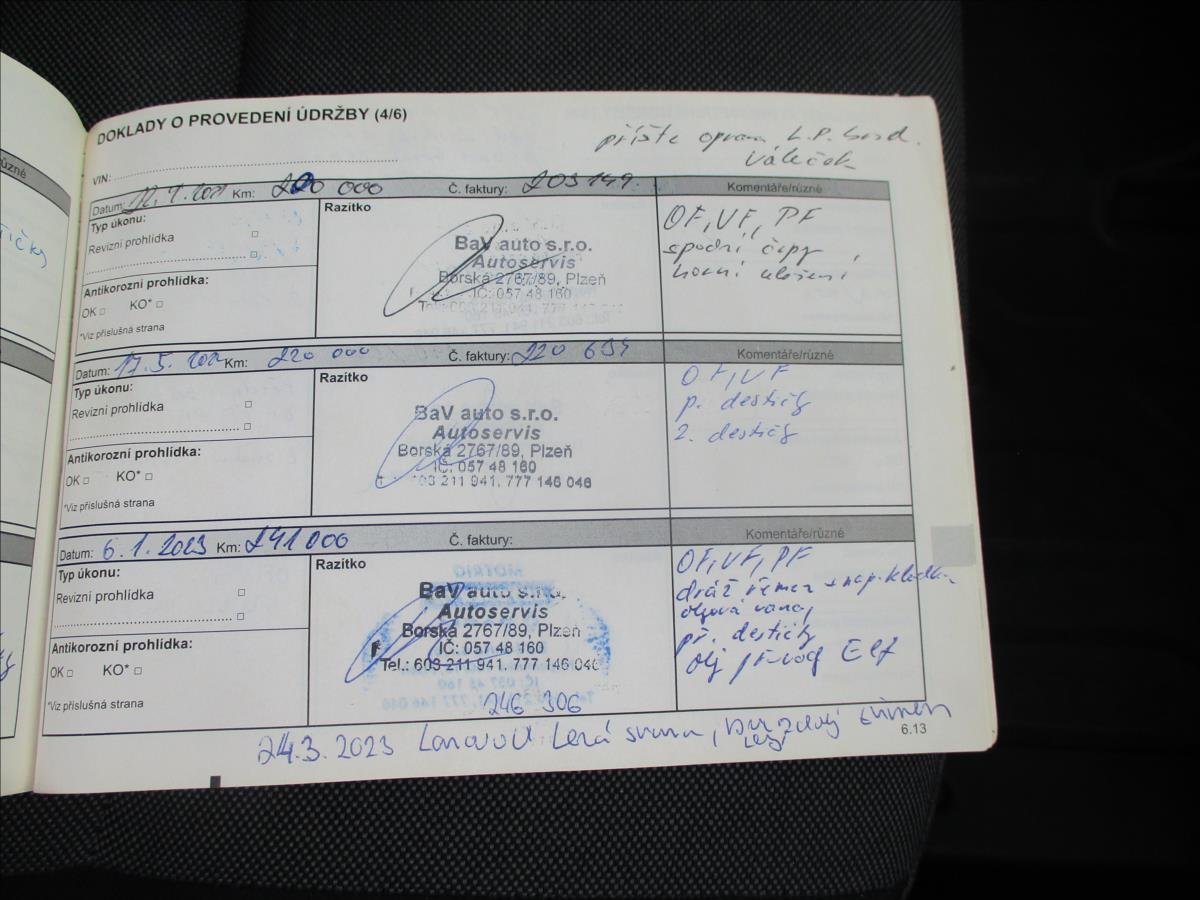 DOKLADY O PROVEDENÍ ÚDRŽBY (4/6)
příště oprava L.P. brzd.
Váleček
VIN:
Datum: 12.1.2021 Km: 200 000 Č. faktury: 203149. Komentáře/různé
Typ úkonu:
Revizní prohlídka
Antikorozní prohlídka:
OK KO*
*Viz příslušná strana
Razítko
BaV auto s.r.o.
Autoservis
Borská 2767/89, Plzeň
IČ: 057 48 160
OF, VF, PF
spodní čepy,
horní uložení
Datum: 17.5. 2021 Km: 220 000 Č. faktury: 220 634 Komentáře/různé
Typ úkonu:
Revizní prohlídka
Antikorozní prohlídka:
OK KO*
*Viz příslušná strana
Razítko
BaV auto s.r.o.
Autoservis
Borská 2767/89, Plzeň
IČ: 057 48 160
603 211 941, 777 146 046
OF, VF
p. destičky
z. destičky
Datum: 6.1.2023 Km: 241 000 Č. faktury: Komentáře/různé
Typ úkonu:
Revizní prohlídka
Antikorozní prohlídka:
OK KO*
*Viz příslušná strana
Razítko
BaV auto s.r.o.
Autoservis
Borská 2767/89, Plzeň
IČ: 057 48 160
Tel.: 603 211 941, 777 146 046
OF, VF, PF
dráž řemen + nap. kladka
olejová vana,
př. destičky
olej převod Elf
246 306
24.3.2023 Lanovod Levá strana, brzdový třmen
Levý
6.13